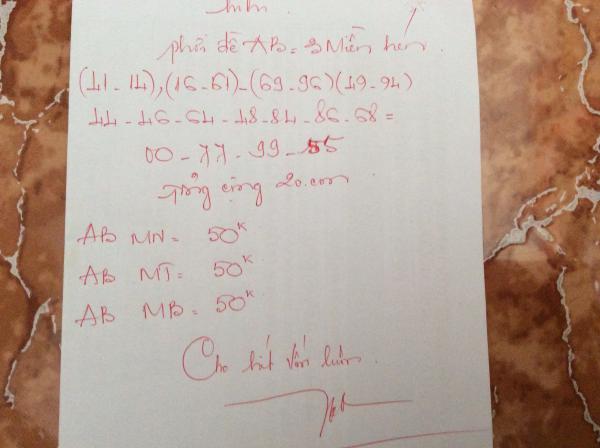 phơi đề AB = 3 Miền hén.
(41-14), (16-61) - (69-96) (49-94)
44 - 46 - 64 - 48 - 84 - 86 - 68 =
00 - 77 - 99 - 55
Tổng cộng 20. con.
AB MN = 50K
AB MT = 50K
AB MB = 50K
Cho hết vốn luôn.